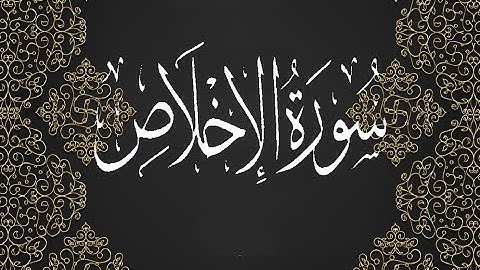 سُورَةُ الإِخْلَاصِ